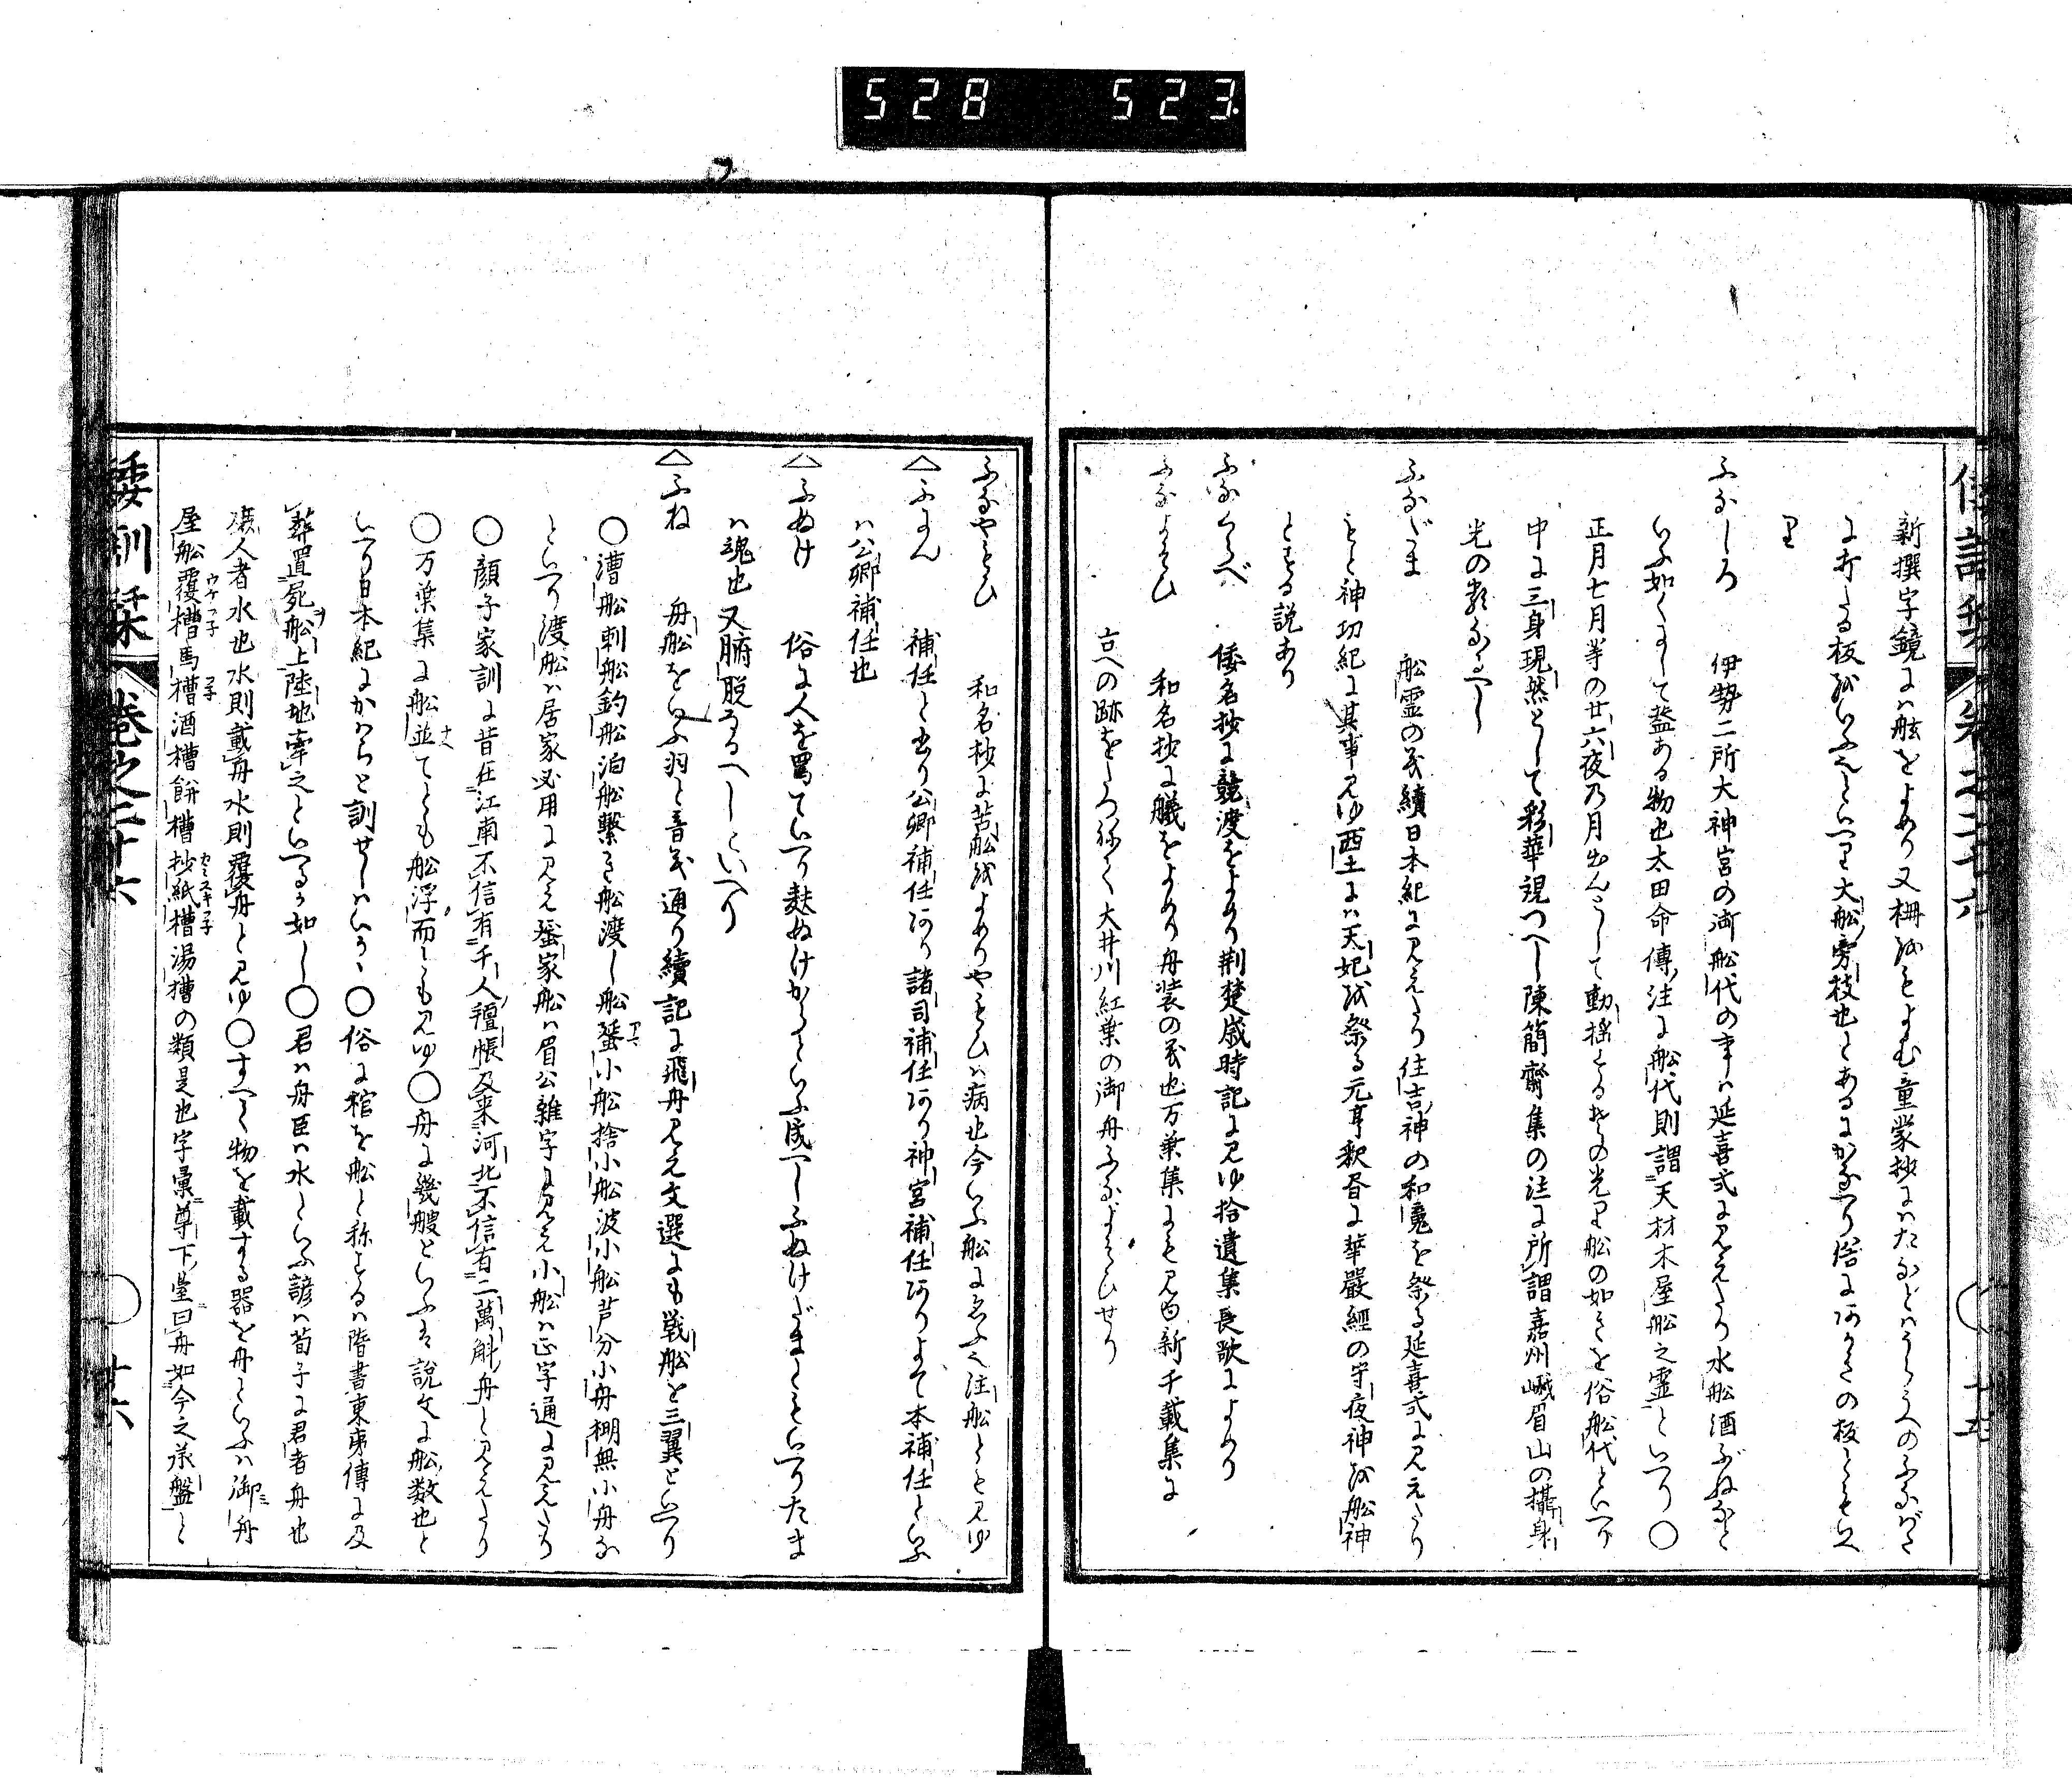 528 523
倭訓栞 卷之二十六 ○ 十五
新撰字鏡に舷をよめり又枻をもよむ童蒙抄にハたなとハうらうへのふなばた
に打たる板をいふといへり大船旁枝也とあるにかなへり俗に
ふなしろ 伊勢二所大神宮の御船代の事ハ延喜式に見えたり水船酒ぶねなと
いふ如くにして蓋ある物也太田命傳注に船代則謂天材木屋船之霊といへり○
正月七月
中に三身現然として彩華現つへし陳簡齋集の注に所謂嘉州峨眉山の攝身
光の類なるへし
ふなだま 船霊の義續日本紀に見えたり住吉神の和魂を祭る延喜式に見えたり
もと神功紀に其事見ゆ西土にハ天妃を祭る元亨釈書に華嚴經の守夜神を船神
とする説あり
ふなくらべ 倭名抄に競渡をよめり荆楚歳時記に見ゆ拾遺集長歌によめり
ふなよそひ 和名抄に艤をよめり舟装の義也万葉集にも見ゆ新千載集に
古への跡をたつねて大井川紅葉の御舟ふなよそひせり
ふなやもひ 和名抄に苫船をよめりやもひハ病也今いふ船にゑふ也注船とも見ゆ
△ふにん 補任と書り公卿補任あり諸司補任あり神宮補任ありよて本補任といふ
ハ公卿補任也
△ふぬけ 俗に人を罵ていへり麩ぬけからといふ成へしふぬけだまともいへりたま
ハ魂也又腑脱なるへしといへり
△ふね 舟船をいふ羽と音義通り續記に飛舟見え文選にも戦船を三翼といへり
○漕船刺船釣船泊船繋き船渡し船蜑小船捨小船波小船芦分小舟棚無小舟な
といへり渡船ハ居家必用に見え蜑家船ハ眉公雜字に見え小船ハ正字通に見えたり
○顔子家訓に昔在江南不信有千人氊帳及来河北不信有二萬斛舟と見えたり
○万葉集に船並てとも船浮而しも見ゆ○舟に幾艘といふは説文に船数也と
いへり日本紀にかはらと訓せしハいかゝ○俗に棺を船と称するハ隋書東夷傳に及
葬置屍船上陸地牽之といへるか如し○君ハ舟臣ハ水といふ諺ハ荀子に君者舟也
庶人者水也水則載舟水則覆舟と見ゆ○すへて物を載する器を舟といふハ御舟
屋船覆槽馬槽酒槽餅槽抄紙槽湯槽の類是也字彙尊下臺曰舟如今之承盤と
倭訓栞 卷之二十六 ○ 十六